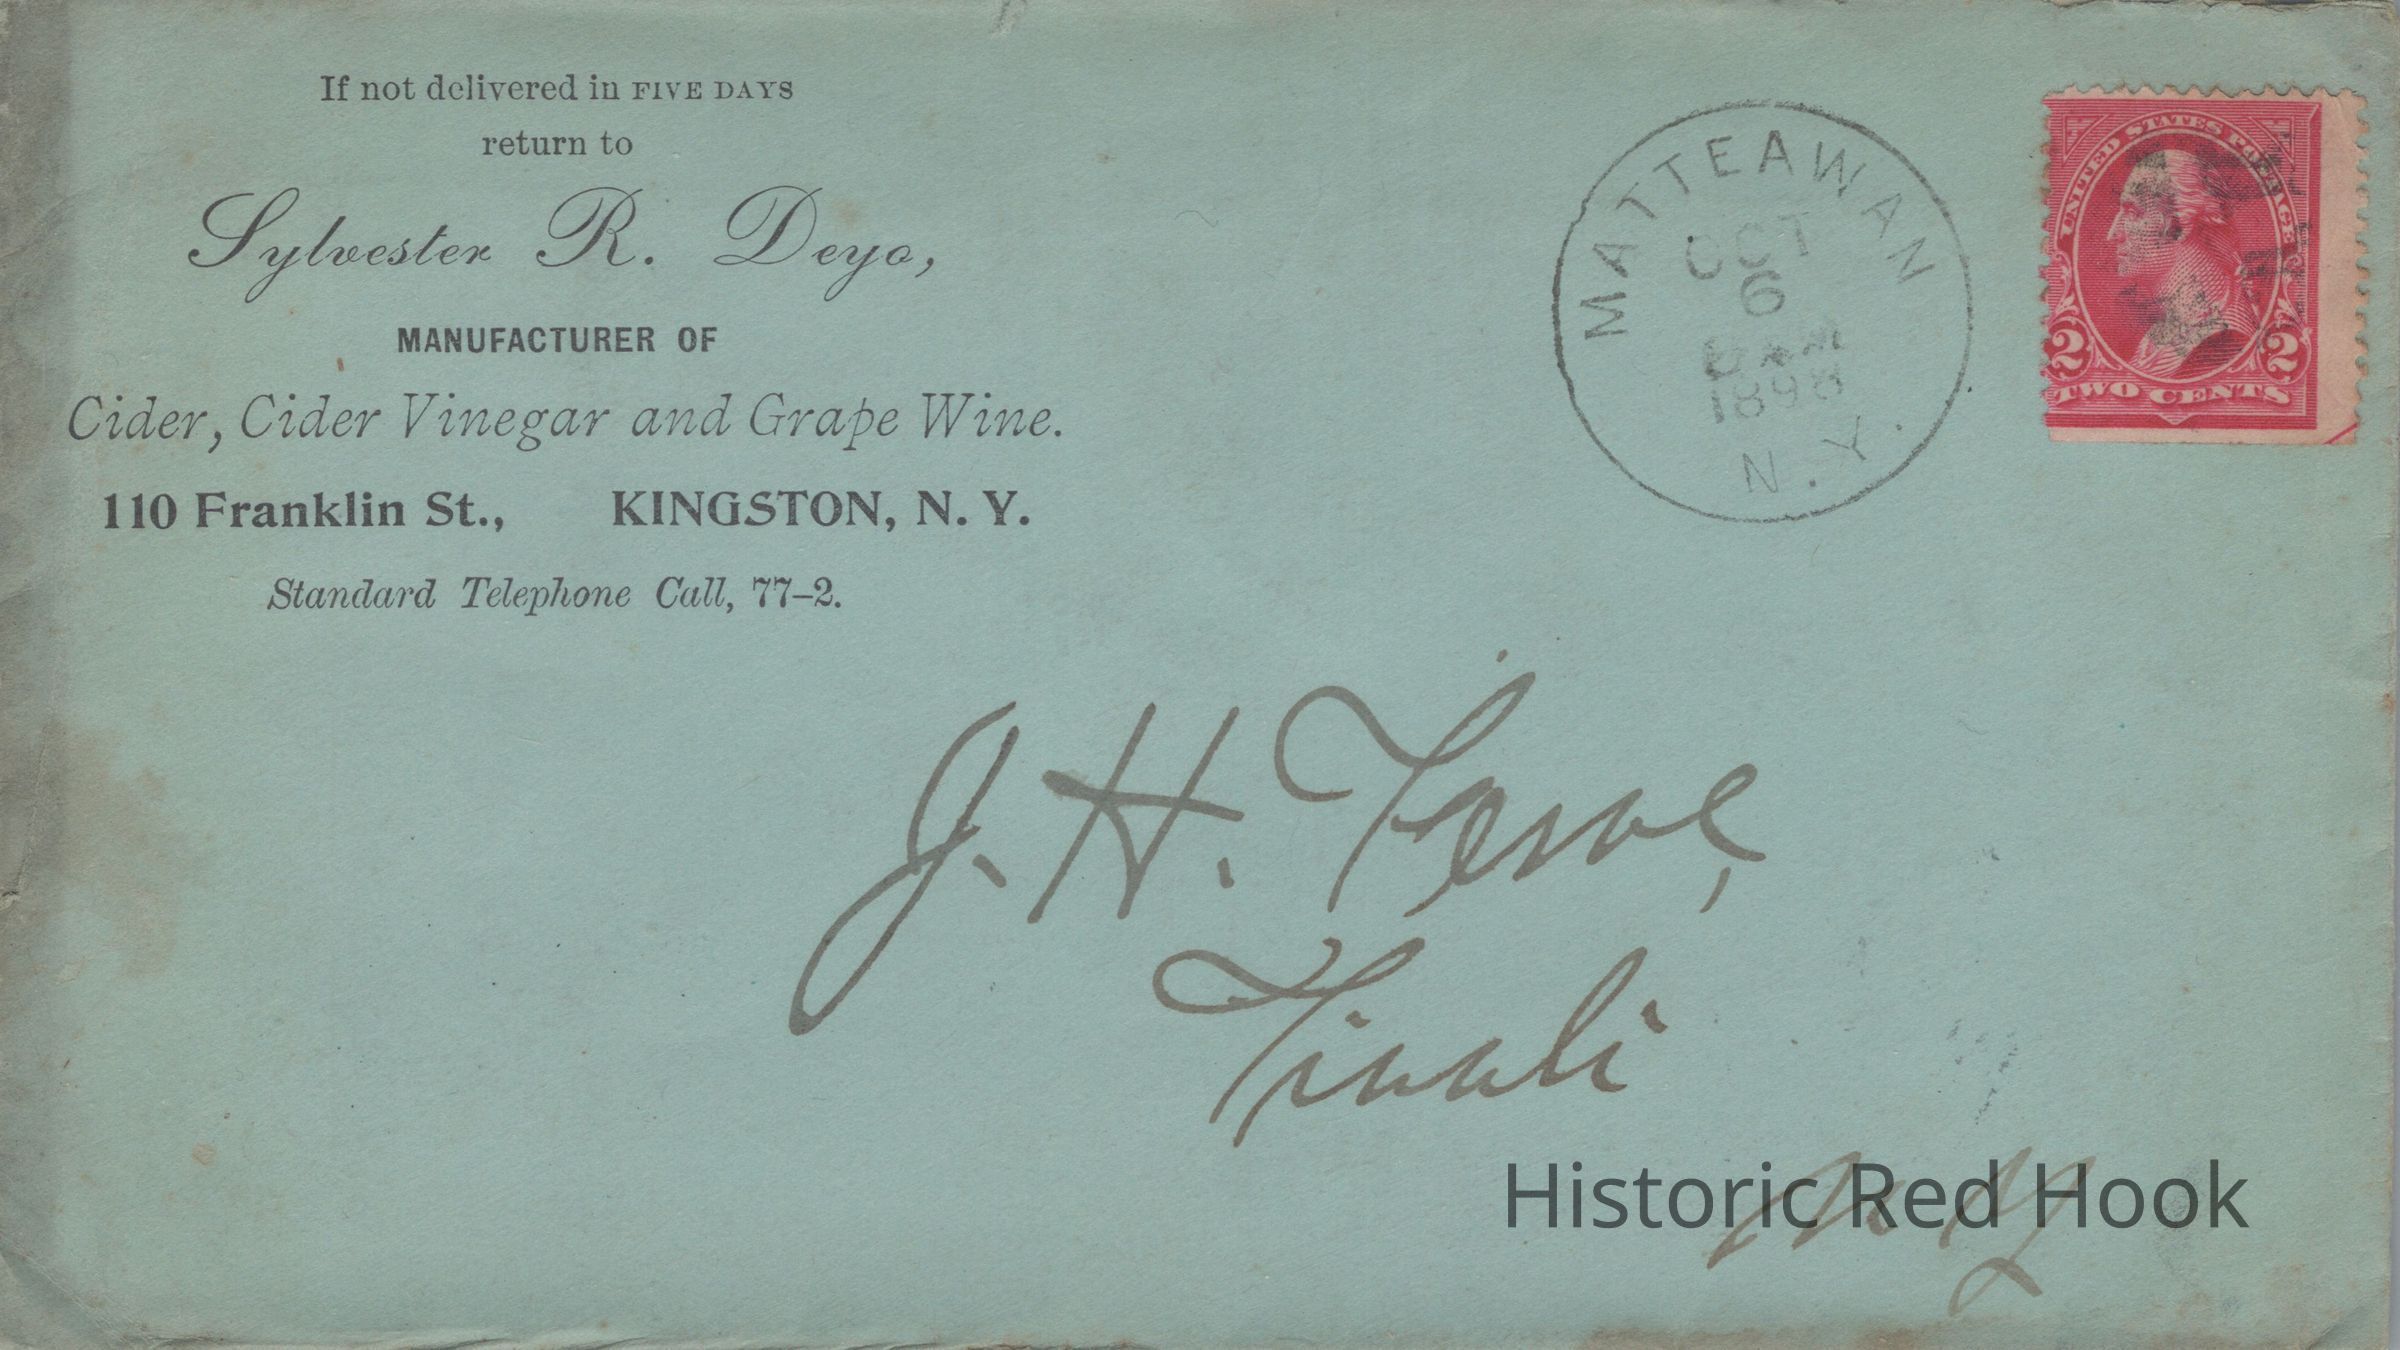 If not delivered in FIVE DAYS
return to
Sylvester R. Deyo,
MANUFACTURER OF
Cider, Cider Vinegar and Grape Wine.
110 Franklin St., KINGSTON, N. Y.
Standard Telephone Call, 77-2.
MATTEAWAN
OCT
6
1898
N. Y.
UNITED STATES POSTAGE
2 2
TWO CENTS
J. H.
Tivoli
N. Y.
Historic Red Hook